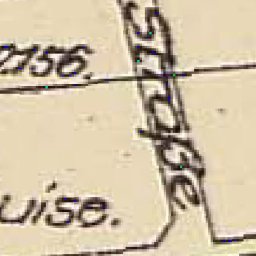 2156.
Straße
uise.